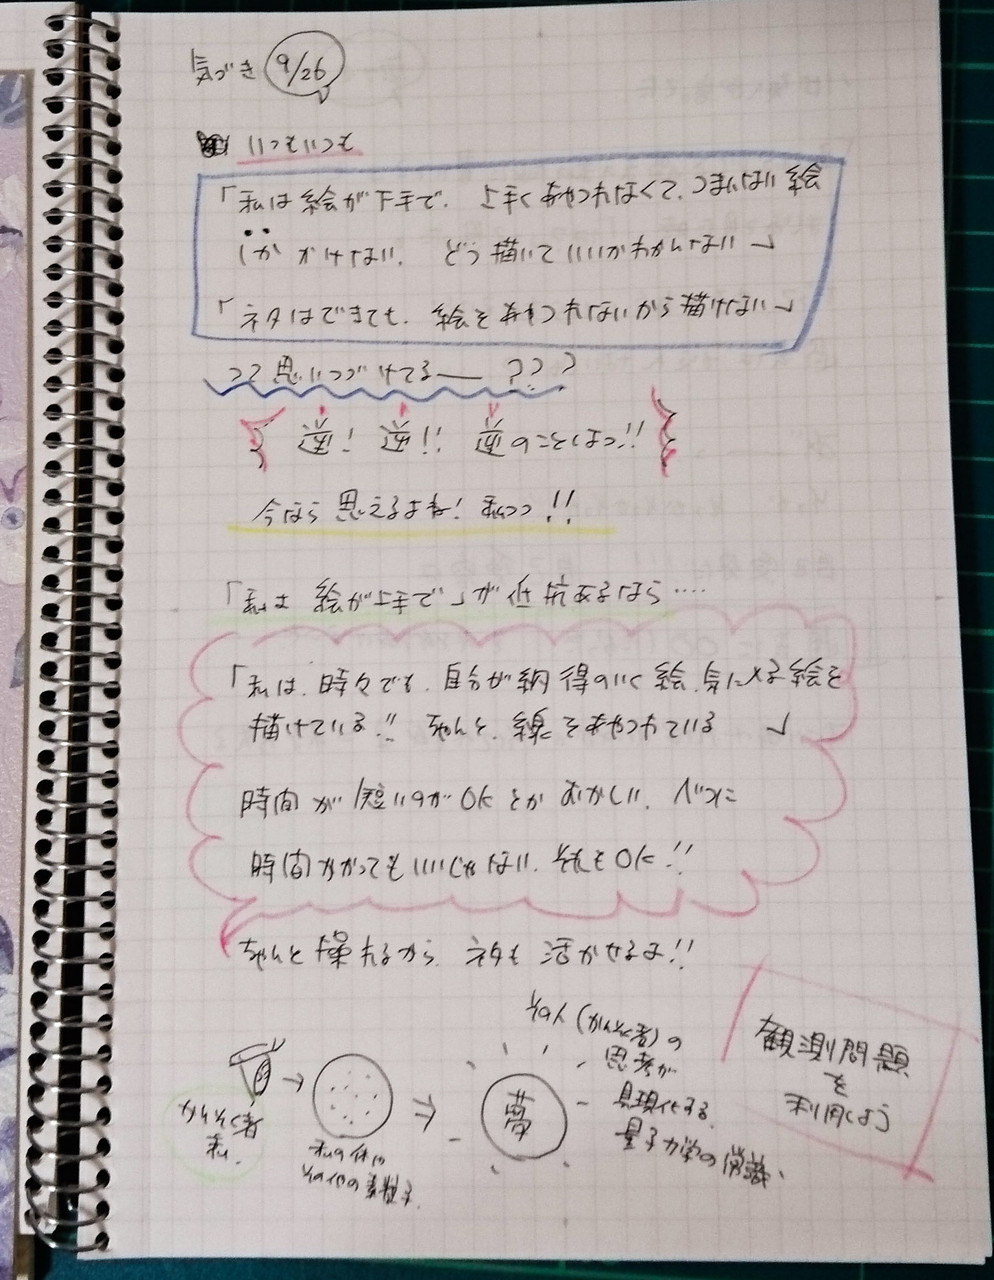 気づき 9/26
いつもいつも
「私は絵が下手で、上手くあやつれなくて、つまんない絵
しか かけない、 どう描いていいかわかんない」
「ネタはできても、絵をあやつれないから描けない」
って思いつづけてるー ???
逆! 逆!! 逆のことばっ!!
今なら思えるよね! 私っ!!
「私は 絵が上手で」が 低抗あるなら ‥‥
「私は、時々でも、自分が納得のいく絵、気に入る絵を
描けている!! ちゃんと、線をあやつれている 」
時間が 短いのがOKとか おかしい、べつに
時間かかってもいいじゃない、それもOK!!
ちゃんと操れるから、ネタも 活かせるよ!!
その人(かんそく者)の
思考が
具現化する、
量子力学の常識、
観測問題
を
利用しよう
かんそく者
私、
→
私の体や
その他の素粒子、
⇒
夢